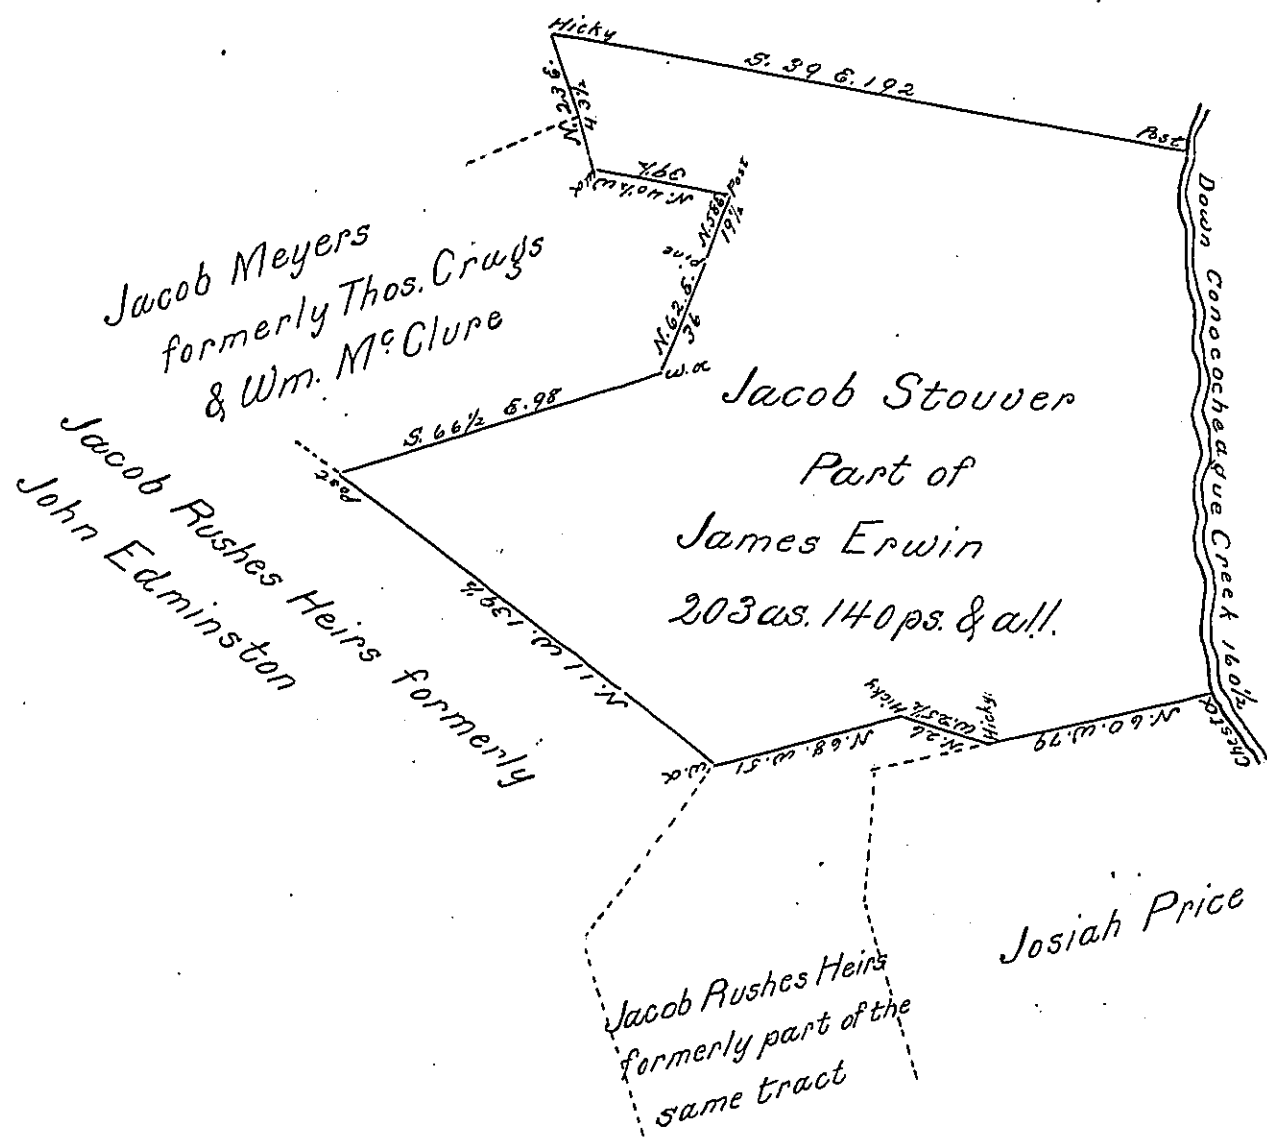 Hicky
S. 39 E. 192
Post
N. 23 E.
43½
W.O
N. 40½ W.
39½
Post
N. 58 E.
19½
Pine
N. 62. E.
36
W.O
S. 66½ E. 98
Post
N. 11 W. 139½
W.O
N. 68. W. 51
Hicky
N. 26
W. 25½
Hicky.
N. 60. W. 79
Chest O
Down Conococheague Creek 160½
Jacob Meyers
formerly Thos. Crags
& Wm. McClure
Jacob Rushes Heirs formerly
John Edminston
Jacob Stouver
Part of
James Erwin
203 as. 140 ps. & all.
Josiah Price
Jacob Rushes Heirs
formerly part of the
same tract